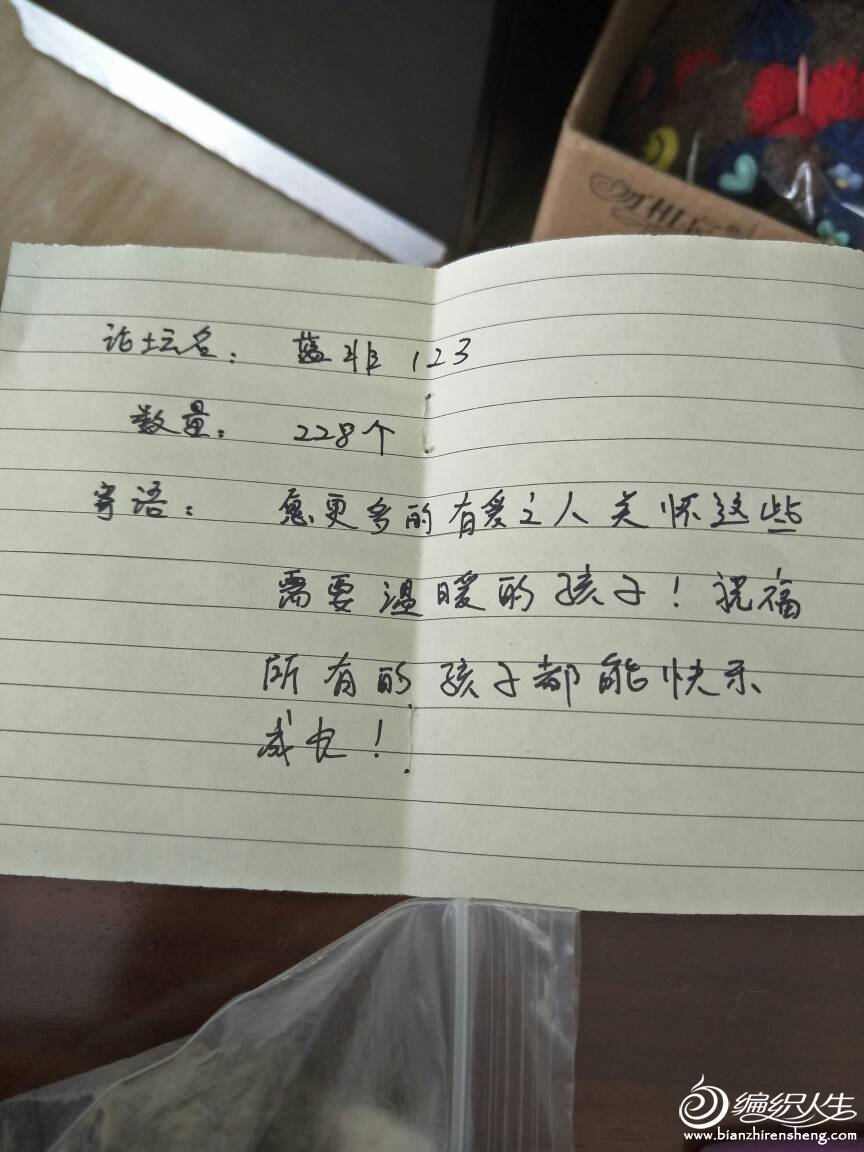 勿相忘
论坛名： 蓝非123
数量： 228个
寄语： 愿更多的有爱之人关怀这些
需要温暖的孩子！祝福
所有的孩子都能快乐
成长！
编织人生
www.bianzhirensheng.com